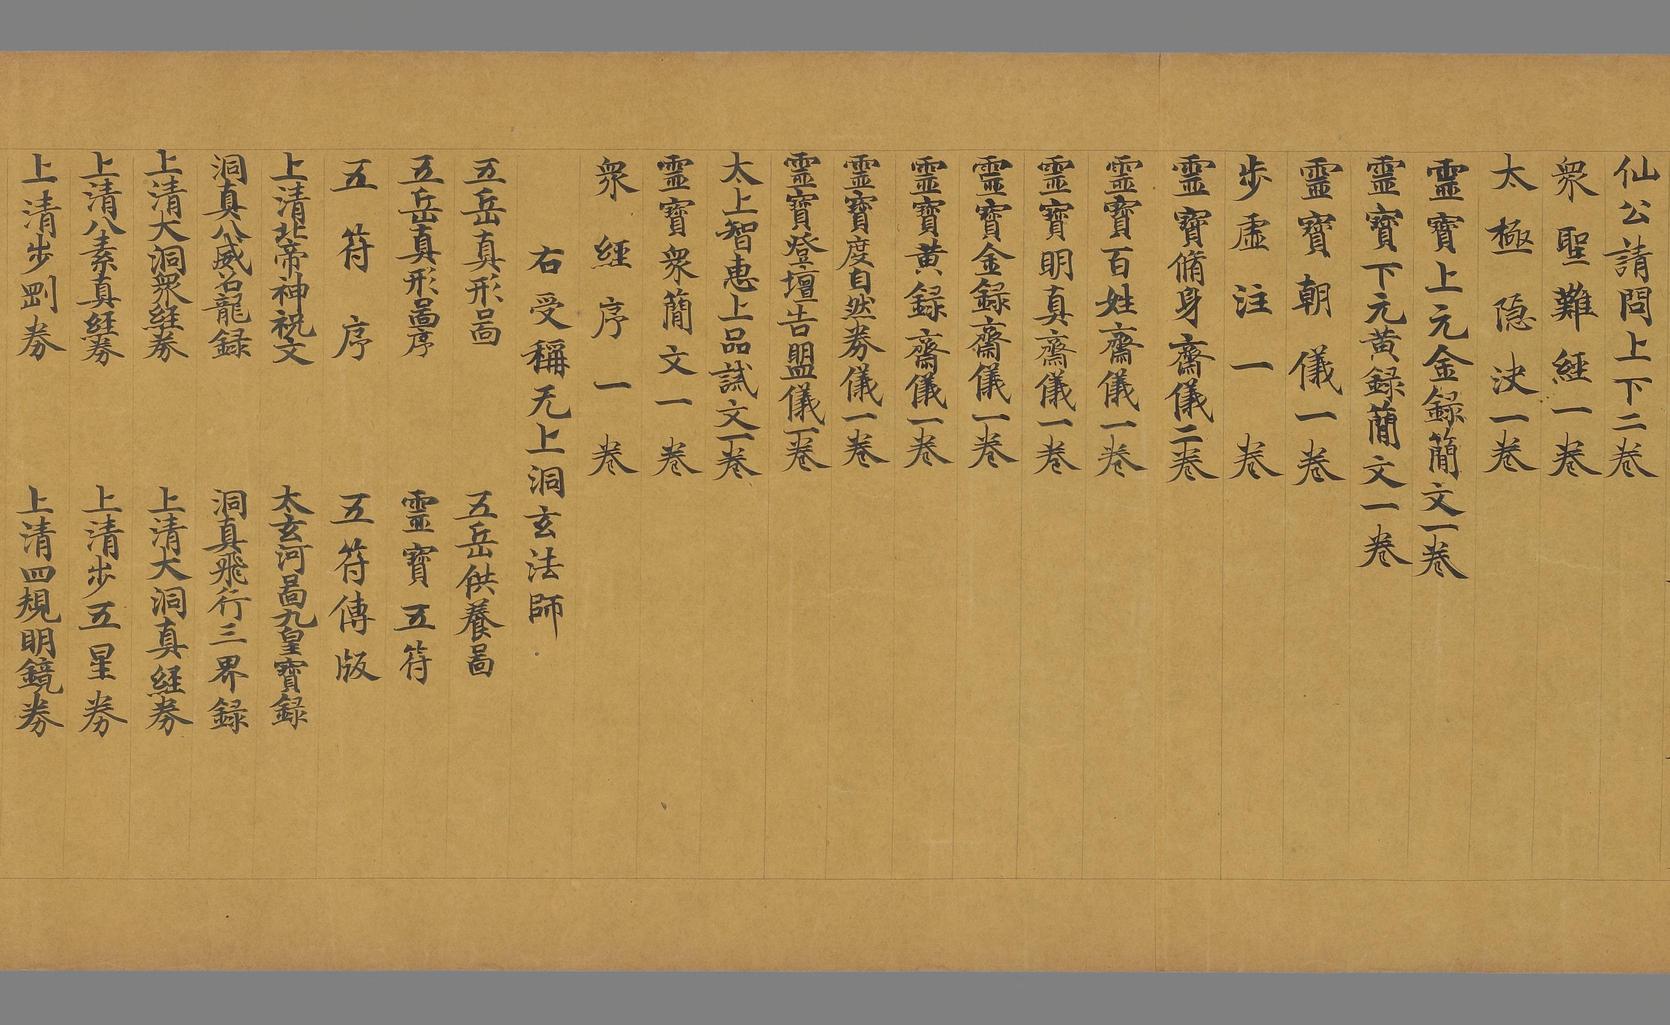 仙公請問上下二卷
衆聖難經一卷
太極隱决一卷
靈寶上元金録簡文一卷
靈寶下元黄録簡文一卷
靈寶朝儀一卷
步虛注一卷
靈寶脩身齋儀二卷
靈寶百姓齋儀一卷
靈寶明真齋儀一卷
靈寶金録齋儀一卷
靈寶黄録齋儀一卷
靈寶度自然券儀一卷
靈寶登壇告盟儀一卷
太上智惠上品誡文一卷
靈寶衆簡文一卷
衆經序一卷
右受稱无上洞玄法師
五岳真形啚 五岳供養啚
五岳真形啚序 靈寶五符
五符序 五符傳版
上清北帝神祝文 太玄河啚九皇寶録
洞真八威召龍録 洞真飛行三界録
上清大洞衆經券 上清大洞真經券
上清八素真經券 上清步五星券
上清步罡券 上清四規明鏡券